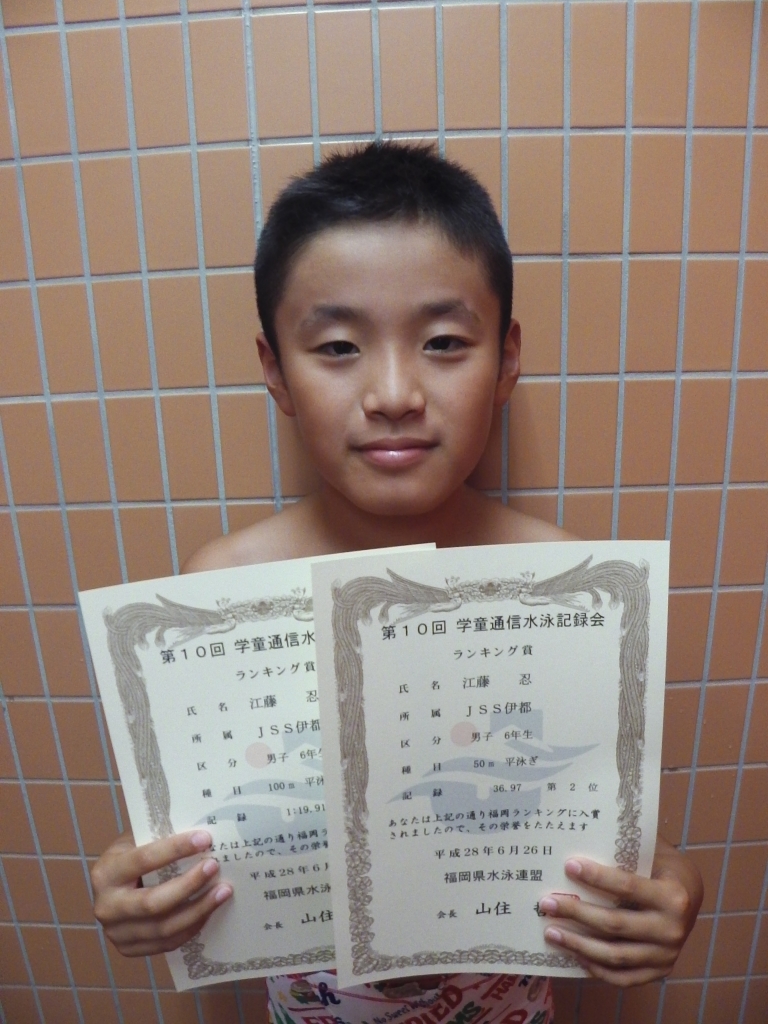 第10回 学童通信水
ランキング賞
氏 名 江藤 忍
所 属 JSS伊都
区 分 男子 6年生
種 目 100m 平泳
記 録 1:19.91
なたは上記の通り福岡ラ
れましたので、その栄
平成28年6月
福岡県水泳
会長 山住
第10回 学童通信水泳記録会
ランキング賞
氏 名 江藤 忍
所 属 JSS伊都
区 分 男子 6年生
種 目 50m 平泳ぎ
記 録 36.97 第 2 位
あなたは上記の通り福岡ランキングに入賞
されましたので、その栄誉をたたえます
平成28年6月26日
福岡県水泳連盟
会長 山住